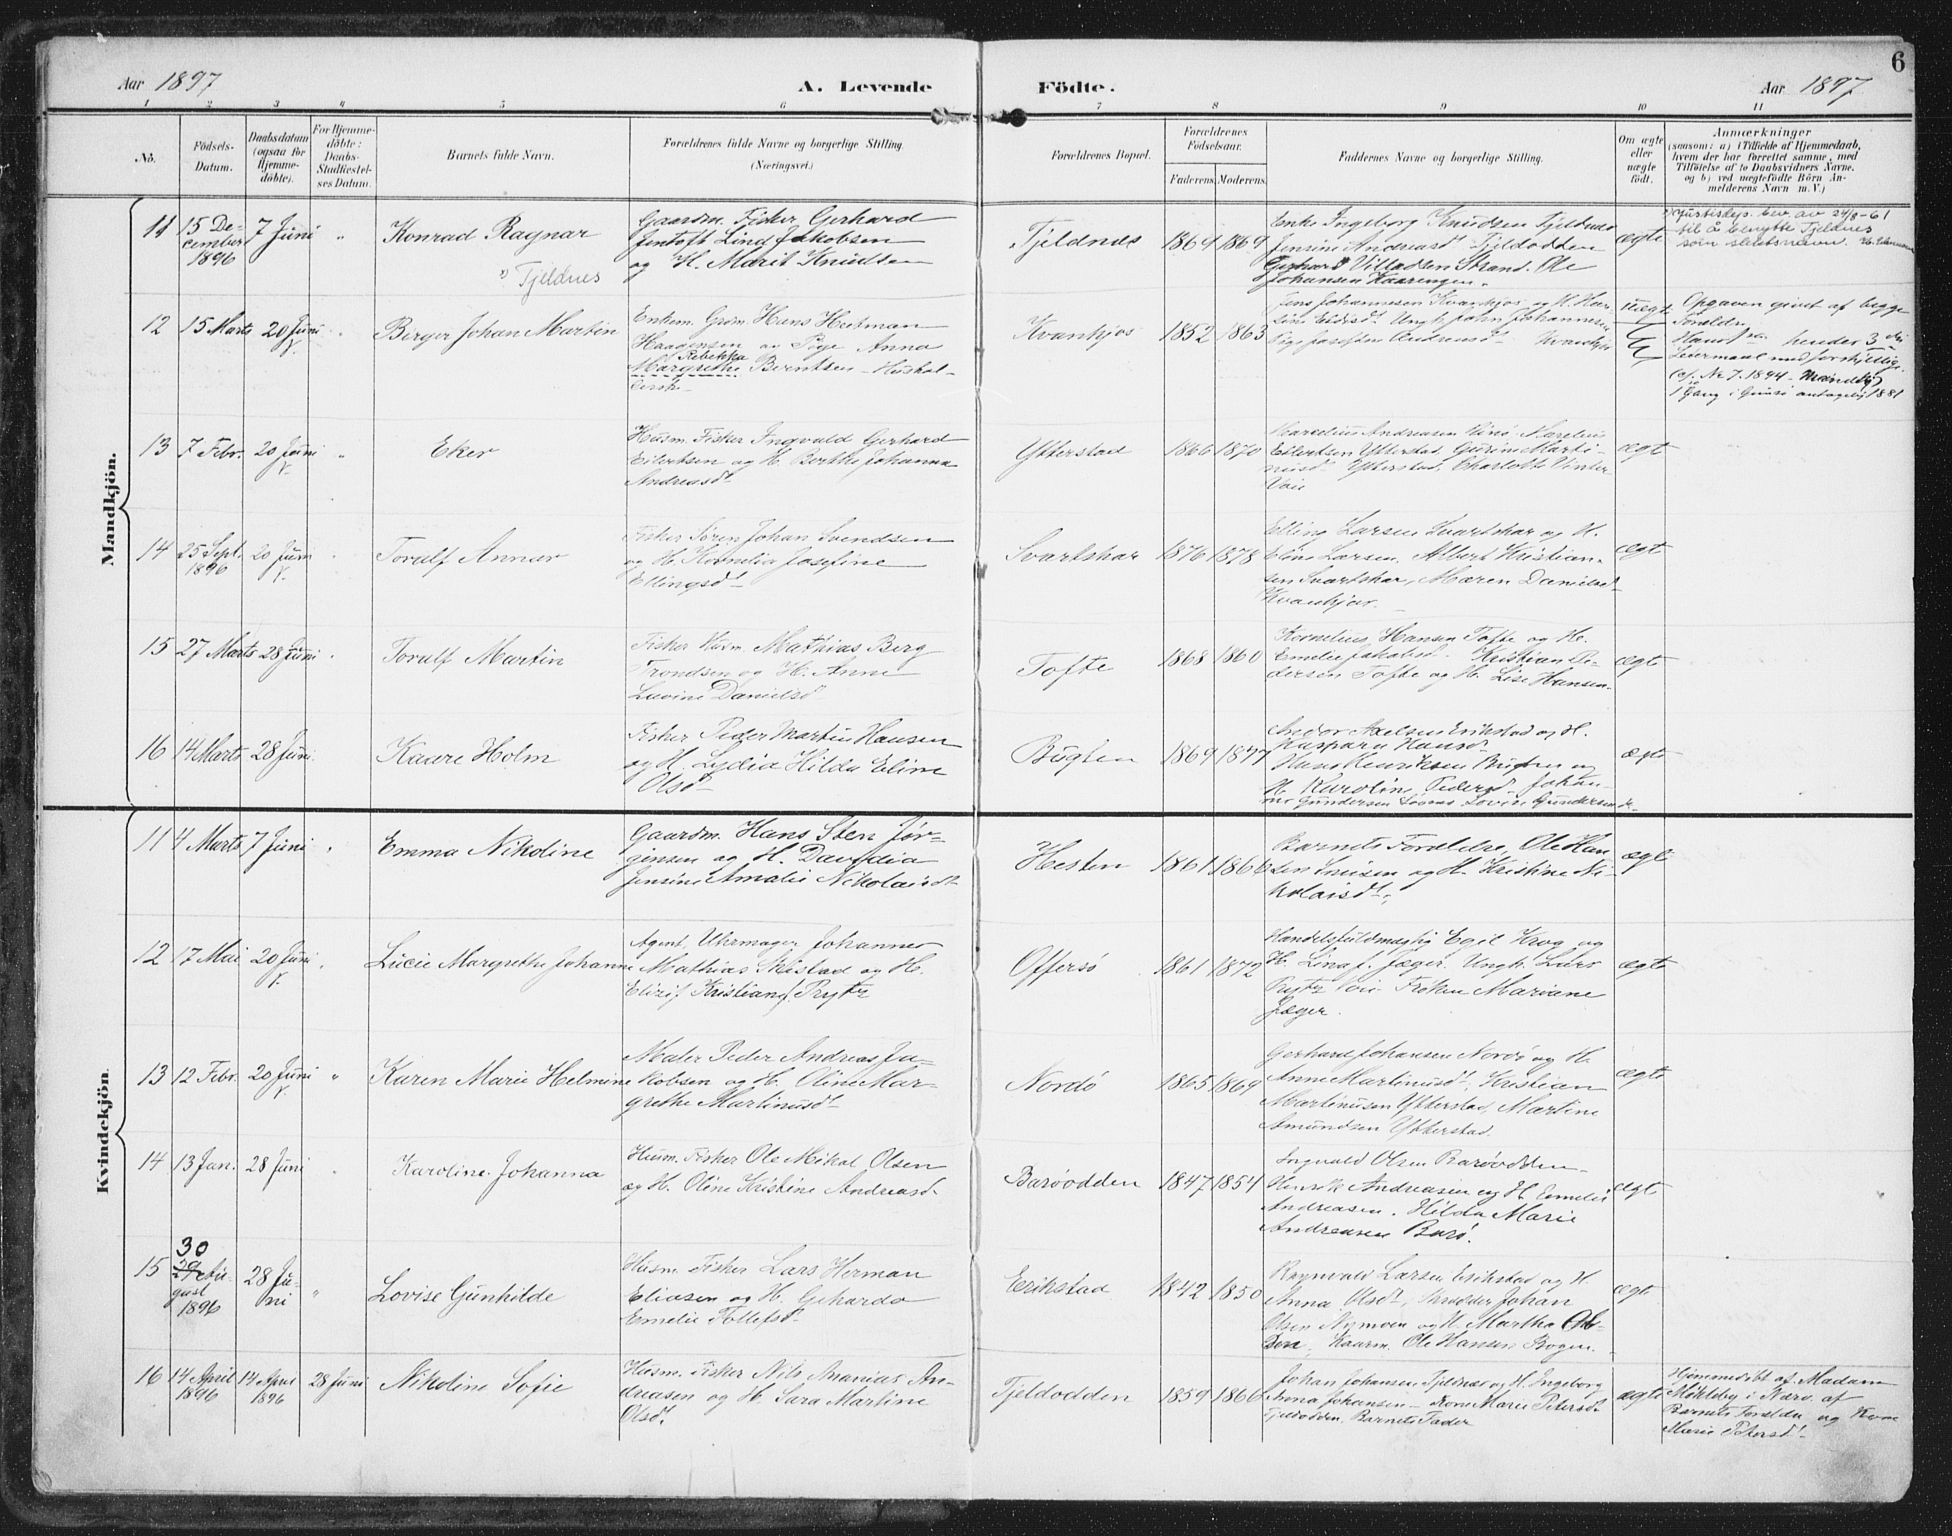 6
Aar 1897
A. Levende Födte.
Aar 1897
1 2 3 4 5 6 7 8 9 10 11
No.
Födsels-Datum.
Daabsdatum (ogsaa for Hjemme-döbte).
For Hjemme-döbte: Daabs-Stadfæstel-ses Datum.
Barnets fulde Navn.
Forældrenes fulde Navne og borgerlige Stilling.
(Næringsvei.)
Forældrenes Bopæl.
Forældrenes Födselsaar.
Faderens. Moderens.
Faddernes Navne og borgerlige Stilling.
Om ægte eller uægte födt.
Anmærkninger
(saasom: a) i Tilfælde af Hjemmedaab,
hvem der har forrettet samme, med
Tilföielse af to Daabsvidners Navne.
og b) ved uægtefödte Börn An-
melderens Navn m. V.)
Mandkjön.
11
15 De-
cember
1896
7 Juni
"
Konrad Ragnar
Tjeldnes
Gaardm. Fisker Gerhard
Jentoft Lind Jakobsen
og H. Marit Knudsen
Tjeldnes
1869 1869
Enke Ingeborg Knudsen Tjeldnes
Jensine Andreasd. Tjeldodden
Gerhard Villadsen Strand. Ole
Johansen Kaaringen.
ægte
Justisdep. bev. av 24/8-61
til å benytte Tjeldnes
som slektsnavn.
12
15 Marts
20 Juni
K.
"
Berger Johan Martin
Enkem. Grdm. Hans Hetman
Haagensen og Pige Anna
Rebekka
Margrethe Berntsen
Kvankjos
1852 1863
Jens Johannesen Kvankjos og H.
Ungk. John Johannesen
Pige Josefine Andreasd. Kvankjos
uægte
Opgaven givet af begge
Forældre
Hans hender 3die
Leiermaal med forskjellige.
cf. No 7. 1894
1 Gang i antagelig 1881
13
7 Febr.
20 Juni
K.
"
Eker
Husm. Fisker Ingvald Gerhard
Eilertsen og H. Berthe Johanna
Andreasd.
Ytterstad
1866 1870
Marselius Andreasen
Eilertsen Ytterstad, Marti-
nusd. Ytterstad, Charlotte Vinter
Voie
ægte
14
25 Sept.
1896
20 Juni
K.
Toralf Annar
Fisker Sören Johan Svendsen
og H. Kornelia Josefine
Ellingsd.
Svartskar
1876 1878
Elling Larsen Svartskar og H.
Eline Larsen, Albert Kristian-
sen Svartskar, Maren Danielsd.
Kvankjos.
ægte
15
27 Marts
28 Juni
Toralf Martin
Fisker Husm. Mathias Berg
Trondsen og H. Anne
Lavine Danielsd.
Tofte
1868 1860
Kornelius Hansen Tofte og H.
Emelie Jakobsd. Kristian Pe-
dersen Tofte og H. Lise Hansen.
ægte
16
14 Marts
28 Juni
Kaare Holm
Fisker Peder Martin Hansen
og H. Lydia Hilda Eline
Olsd.
Bugten
1869 1877
Andor Axelsen Erikstad og H.
Kaspara Hansd.
Hans Henriksen Bugten og
H. Karoline Pedersd. Johan-
Gundersen Lovise Gundersen
ægte
Kvindekjön.
11
4 Marts
7 Juni
"
Emma Nikoline
Gaardm. Hans Sten Jør-
gensen og H. Davidia
Jensine Amalie Nikolaisd.
Hesten
1861 1866
Barnets Forældre, Ole Han-
sen og H. Kristine Ni-
kolaisd.
ægte
12
17 Mai
20 Juni
K.
Lucie Margrethe Johanne
Agent, Uhrmager Johannes
Mathias Skistad og H.
Kristiane Prytz
Offersö
1861 1872
Handelsfuldmægtig Egil Krog og
H. Lina f. Jæger. Ungk. Lars
Prytz Voie Frøken Mariane
Jæger.
ægte
13
12 Febr.
20 Juni
K.
"
Karen Marie Helmine
Maler Peder Andreas Ja-
kobsen og H. Oline Mar-
grethe Martinusd.
Nordö
1865 1869
Gerhard Johansen Nordö og H.
Anne Martinusd., Kristian
Martinusen Ytterstad, Martine
Amundsen Ytterstad.
ægte
14
13 Jan.
28 Juni
Karoline Johanna
Husm. Fisker Ole Mikal Olsen
og H. Oline Kristine Andreasd.
Baröodden
1847 1854
Ingvald Olsen Baröodden
Henrik Andreasen og H. Emelie
Andreasen. Hilda Marie
Andreasen Barö.
ægte
15
30
29 Au-
gust
1896
28 Ju-
ni
"
Lovise Gunhilde
Husm. Fisker Lars Herman
Eliasen og H. Gekarda
Emelie Tollefsd.
Erikstad
1842 1850
Ragnvald Larsen Erikstad og H.
Anna Olsd., Skrædder Johan
Olsen Nymoen og H. Martha Ol-
sen, Kaarm. Ole Hansen Bogen.
ægte
16
14 April
1896
14 April
1896
28 Juni
Nikoline Sofie
Husm. Fisker Nils Ananias An-
dreasen og H. Sara Martine
Olsd.
Tjeldodden
1859 1866
Johan Johansen Tjeldnes og H. Ingeborg
Anna Johansen - Kone Marie Petersd.
Tjeldodden, Barnets Fader
ægte
Hjemmedøbt af Madam
Mökleby i Nærv. af
Barnets Forældre og Kone
Marie Petersd.